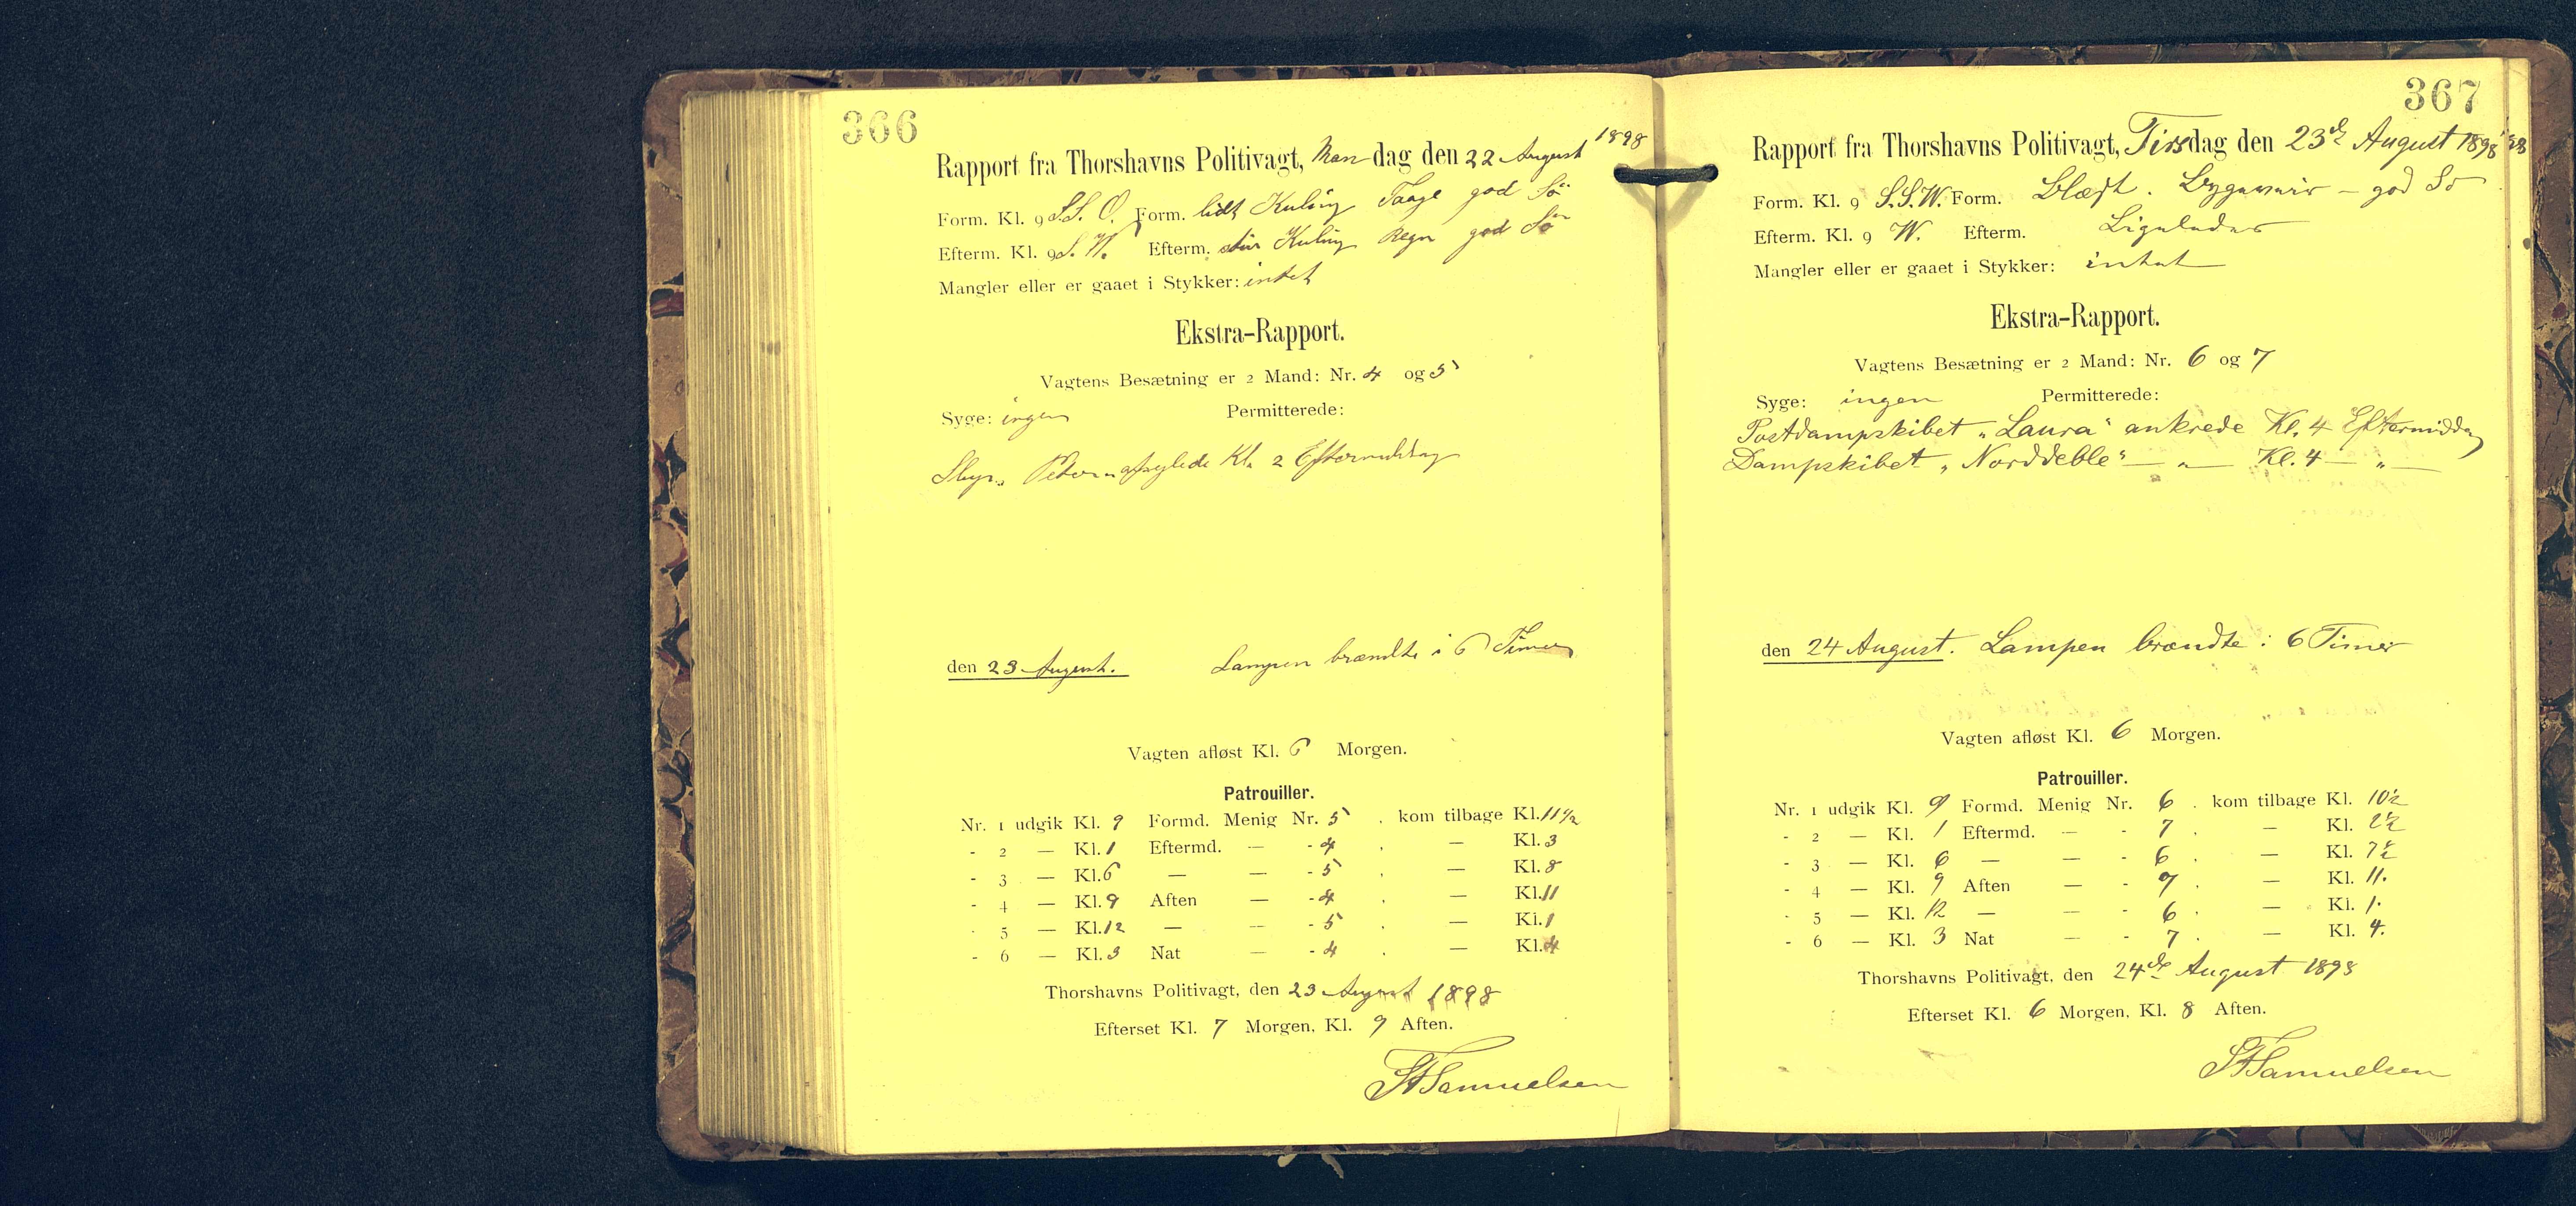 366
Rapport fra Thorshavns Politivagt, Mandag den 22 August 1898
Form. Kl. 9 S.S.O. Form. lidt Kuling Taage god Sö
Efterm. Kl. 9 S.W. Efterm. stiv Kuling Regn god Sö
Mangler eller er gaaet i Stykker: intet
Ekstra-Rapport.
Vagtens Besætning er 2 Mand: Nr. 4 og 5
Syge: ingen Permitterede:
afseglede Kl. 2 Eftermiddag
den 23 August. Lampen brændte i 6 Timer
Vagten afløst Kl. 6 Morgen.
Patrouiller.
Nr. 1 udgik Kl. 9 Formd. Menig Nr. 5 . kom tilbage Kl. 11½
- 2 — Kl. 1 Eftermd. — - 4 . — Kl. 3
- 3 — Kl. 6 — — - 5 . — Kl. 8
- 4 — Kl. 9 Aften — - 4 . — Kl. 11
- 5 — Kl. 12 — — - 5 . — Kl. 1
- 6 — Kl. 3 Nat — - 4 . — Kl. 4
Thorshavns Politivagt, den 23 August 1898
Efterset Kl. 7 Morgen, Kl. 9 Aften.
Samuelsen
367
Rapport fra Thorshavns Politivagt, Tirsdag den 23de August 1898
Form. Kl. 9 S.S.W. Form. Blæst. Bygeveir – god Sö
Efterm. Kl. 9 W. Efterm. Ligeledes
Mangler eller er gaaet i Stykker: intet
Ekstra-Rapport.
Vagtens Besætning er 2 Mand: Nr. 6 og 7
Syge: ingen Permitterede:
Postdampskibet „Laura" ankrede Kl. 4 Eftermiddag
Dampskibet „Norddeble" — „ — Kl. 4 — „ —
den 24 August. Lampen brændte i 6 Timer
Vagten afløst Kl. 6 Morgen.
Patrouiller.
Nr. 1 udgik Kl. 9 Formd. Menig Nr. 6 . kom tilbage Kl. 10½
- 2 — Kl. 1 Eftermd. — - 7 . — Kl. 2½
- 3 — Kl. 6 — — - 6 . — Kl. 7½
- 4 — Kl. 9 Aften — - 7 . — Kl. 11.
- 5 — Kl. 12 — — - 6 . — Kl. 1.
- 6 — Kl. 3 Nat — - 7 . — Kl. 4.
Thorshavns Politivagt, den 24de August 1898
Efterset Kl. 6 Morgen, Kl. 8 Aften.
Samuelsen